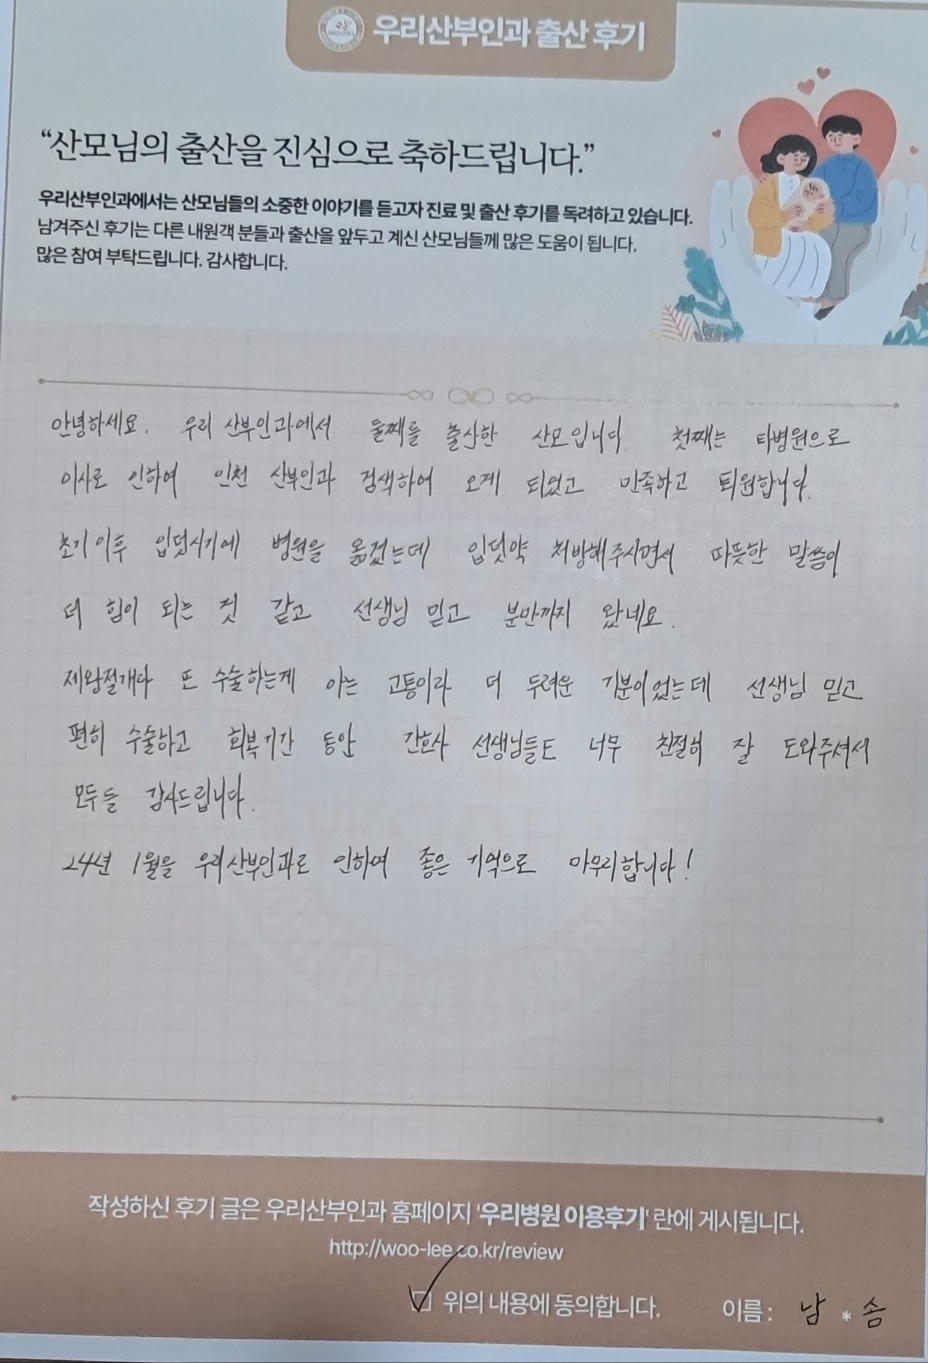 우리산부인과 출산 후기
“산모님의 출산을 진심으로 축하드립니다.”
우리산부인과에서는 산모님들의 소중한 이야기를 듣고자 진료 및 출산 후기를 독려하고 있습니다.
남겨주신 후기는 다른 내원객 분들과 출산을 앞두고 계신 산모님들께 많은 도움이 됩니다.
많은 참여 부탁드립니다. 감사합니다.
안녕하세요. 우리 산부인과에서 둘째를 출산한 산모입니다 첫째는 타병원으로
이사로 인하여 인천 산부인과 검색하여 오게 되었고 만족하고 퇴원합니다.
초기 이후 입덧시기에 병원을 옮겼는데 입덧약 처방해주시면서 따뜻한 말씀이
더 힘이 되는 것 같고 선생님 믿고 분만까지 왔네요.
제왕절개다 또 수술하는게 아는 고통이라 더 두려운 기분이었는데 선생님 믿고
편히 수술하고 회복기간 동안 간호사 선생님들도 너무 친절히 잘 도와주셔서
모두들 감사드립니다.
24년 1월을 우리산부인과로 인하여 좋은 기억으로 마무리합니다!
작성하신 후기 글은 우리산부인과 홈페이지 '우리병원 이용후기' 란에 게시됩니다.
http://woo-lee.co.kr/review
위의 내용에 동의합니다. 이름 : 남 * 솜